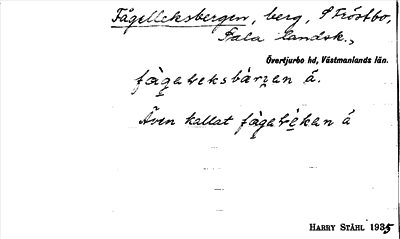 Fågelleksbergen, berg, S Fröstbo,
Sala landsk.,
Övertjurbo hd, Västmanlands län.
fàgaleksbàrʒan á.
Även kallat fàgalèkan á
HARRY STÅHL 1935